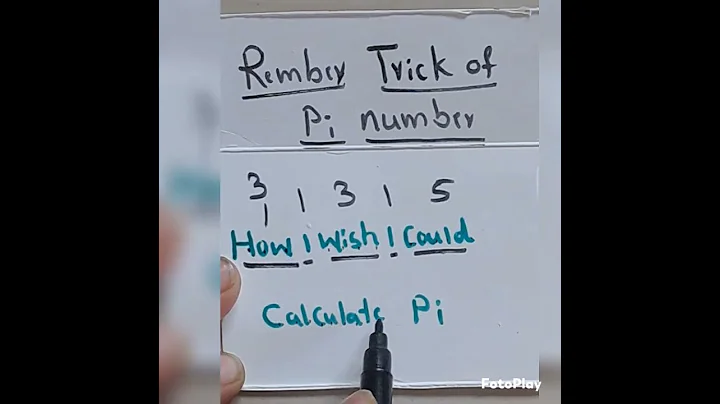 Rember Trick of
Pi number
3 1 3 1 5
1
How I Wish I Could
Calculate Pi
FotoPlay